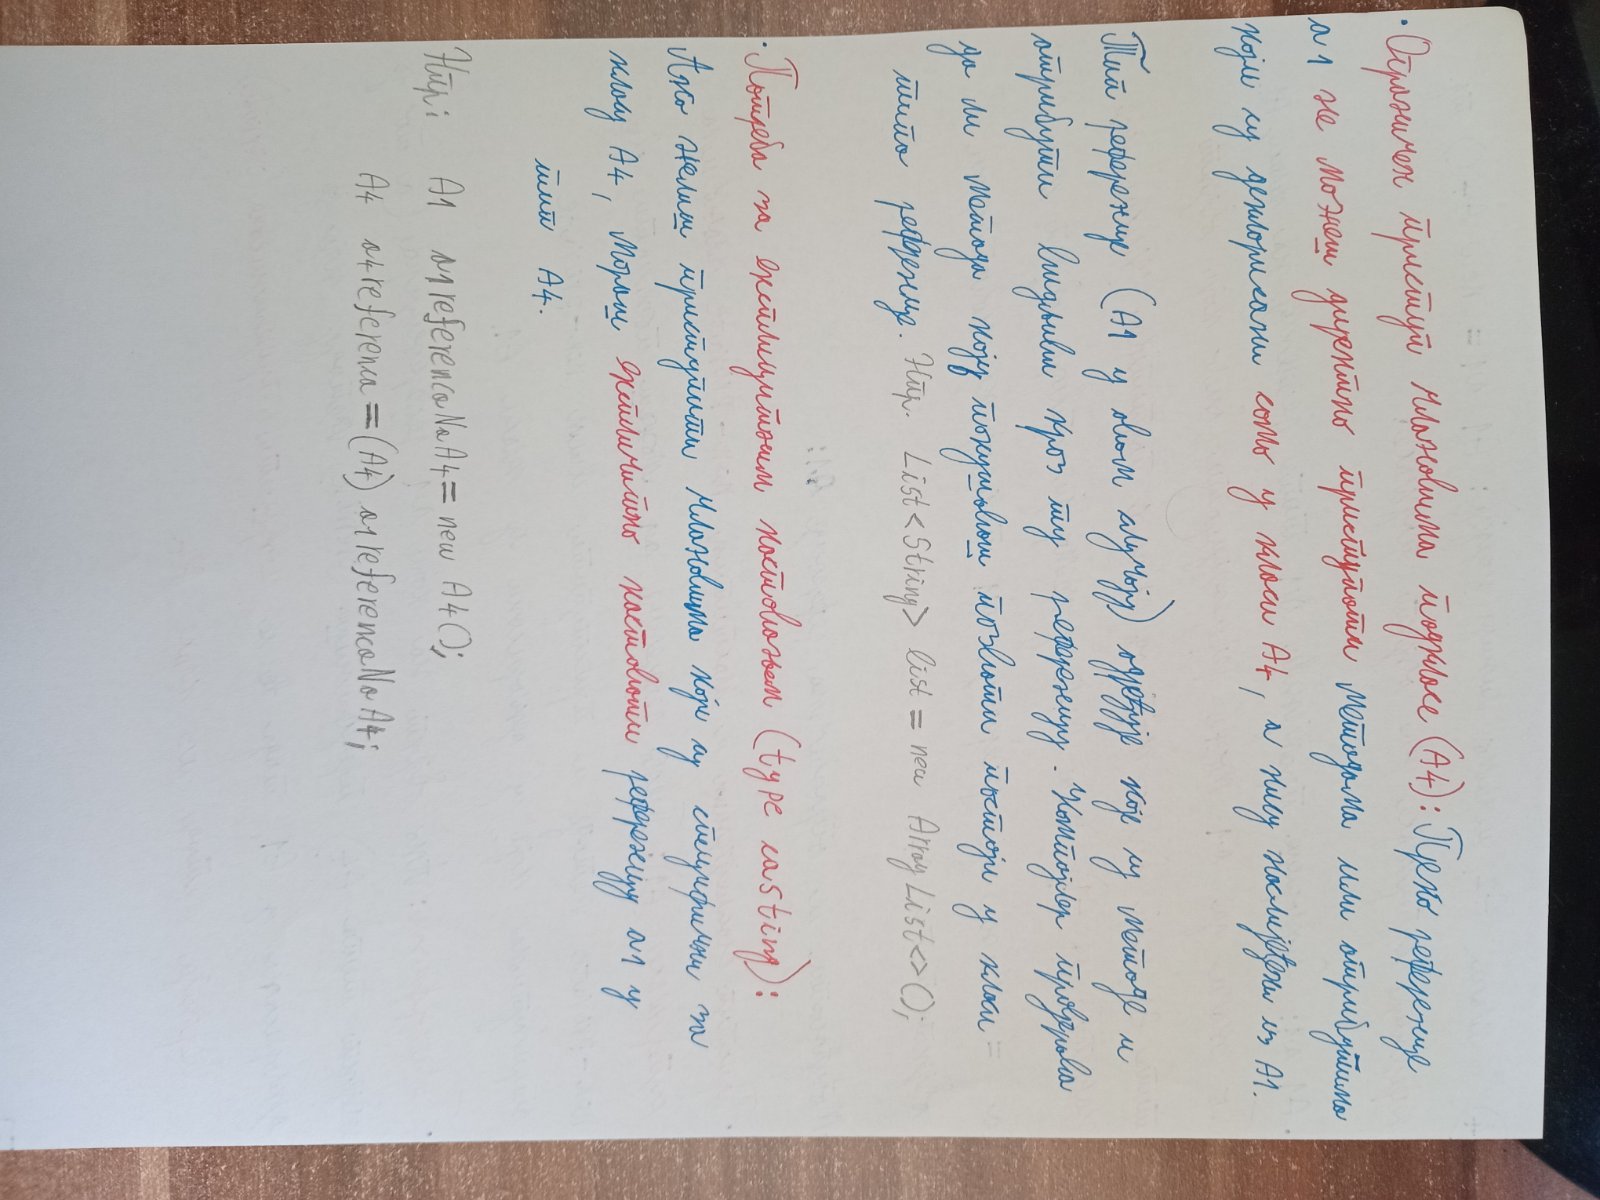 · Ограничен приступ члановима подкласе (А4): Преко референце
а1 не можеш директно приступати методама или атрибутима
који су декларисани само у класи А4, а нису наслијеђени из А1.
Тип референце (А1 у овом случају) одређује које су методе и
атрибути видљиви кроз ту референцу. Компајлер провјерава
да ли метода коју покушаваш позвати постоји у класи
типа референце. Нпр. List<String> list = new ArrayList<>();
· Потреба за експлицитним кастовањем (type casting):
Ако желиш приступити члановима који су специфични за
класу А4, мораш експлицитно кастовати референцу а1 у
тип А4.
Нпр: A1 a1referencaNaA4 = new A4();
A4 a4referenca = (A4) a1referencaNaA4;